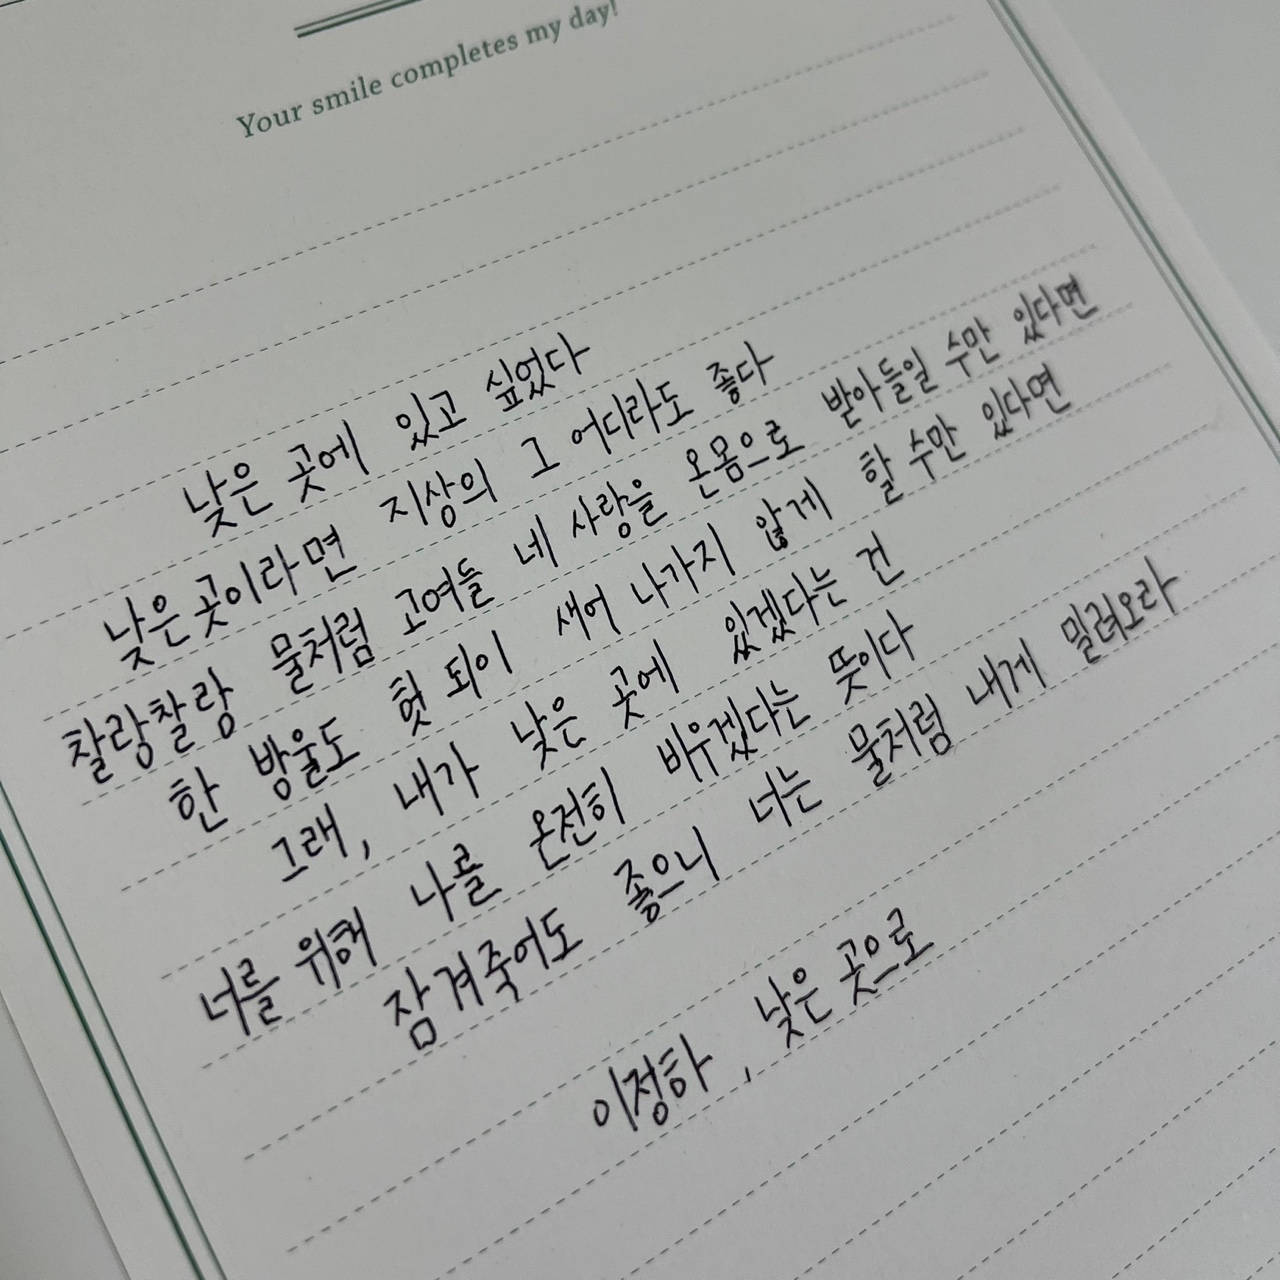 Your smile completes my day!
낮은 곳에 있고 싶었다
낮은 곳이라면 지상의 그 어디라도 좋다
찰랑찰랑 물처럼 고여들 네 사랑을 온몸으로 받아들일 수만 있다면
한 방울도 헛 되이 새어 나가지 않게 할 수만 있다면
그래, 내가 낮은 곳에 있겠다는 건
너를 위해 나를 온전히 비우겠다는 뜻이다
잠겨죽어도 좋으니 너는 물처럼 내게 밀려오라
이정하, 낮은 곳으로